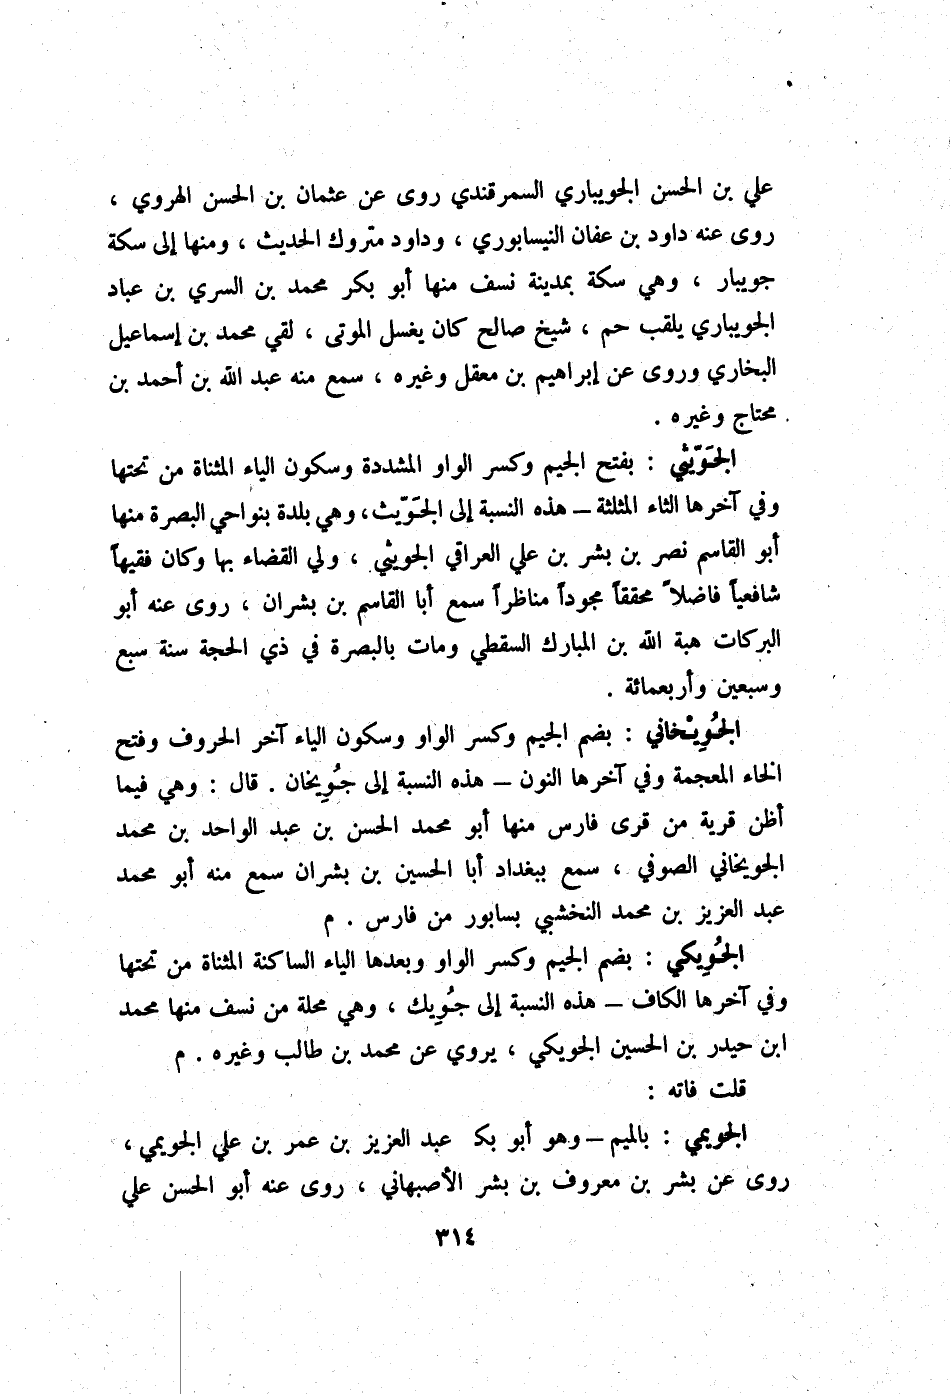 علي بن الحسن الجويباري السمرقندي روى عن عثمان بن الحسن الهروي ،
روى عنه داود بن عفان النيسابوري ، وداود متروك الحديث ، ومنها إلى سكة
جويبار ، وهي سكة بمدينة نسف منها أبو بكر محمد بن السري بن عباد
الجويباري يلقب حم ، شيخ صالح كان يغسل الموتى ، لقي محمد بن إسماعيل
البخاري وروى عن إبراهيم بن معقل وغيره ، سمع منه عبد الله بن أحمد بن
محتاج وغيره .
الجَوِّيثي : بفتح الجيم وكسر الواو المشددة وسكون الياء المثناة من تحتها
وفي آخرها الثاء المثلثة – هذه النسبة إلى الجَوِّيث، وهي بلدة بنواحي البصرة منها
أبو القاسم نصر بن بشر بن علي العراقي الجويثي ، ولي القضاء بها وكان فقيهاً
شافعياً فاضلاً محققاً مجوداً مناظراً سمع أبا القاسم بن بشران ، روى عنه أبو
البركات هبة الله بن المبارك السقطي ومات بالبصرة في ذي الحجة سنة سبع
وسبعين وأربعمائة .
الجُوِيْخاني : بضم الجيم وكسر الواو وسكون الياء آخر الحروف وفتح
الخاء المعجمة وفي آخرها النون – هذه النسبة إلى جُوِيخان . قال : وهي فيما
أظن قرية من قرى فارس منها أبو محمد الحسن بن عبد الواحد بن محمد
الجويخاني الصوفي ، سمع ببغداد أبا الحسين بن بشران سمع منه أبو محمد
عبد العزيز بن محمد النخشبي بسابور من فارس . م
الجُوِيكي : بضم الجيم وكسر الواو وبعدها الياء الساكنة المثناة من تحتها
وفي آخرها الكاف – هذه النسبة إلى جُوِيك ، وهي محلة من نسف منها محمد
ابن حيدر بن الحسين الجويكي ، يروي عن محمد بن طالب وغيره . م
قلت فاته :
الجويمي : بالميم – وهو أبو بك عبد العزيز بن عمر بن علي الجويمي ،
روى عن بشر بن معروف بن بشر الأصبهاني ، روى عنه أبو الحسن علي
٣١٤